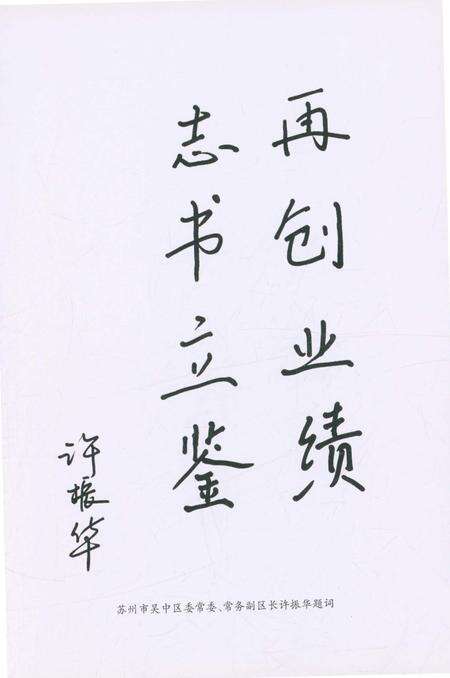 再创业绩
志书立鉴
许振华
苏州市吴中区委常委、常务副区长许振华题词